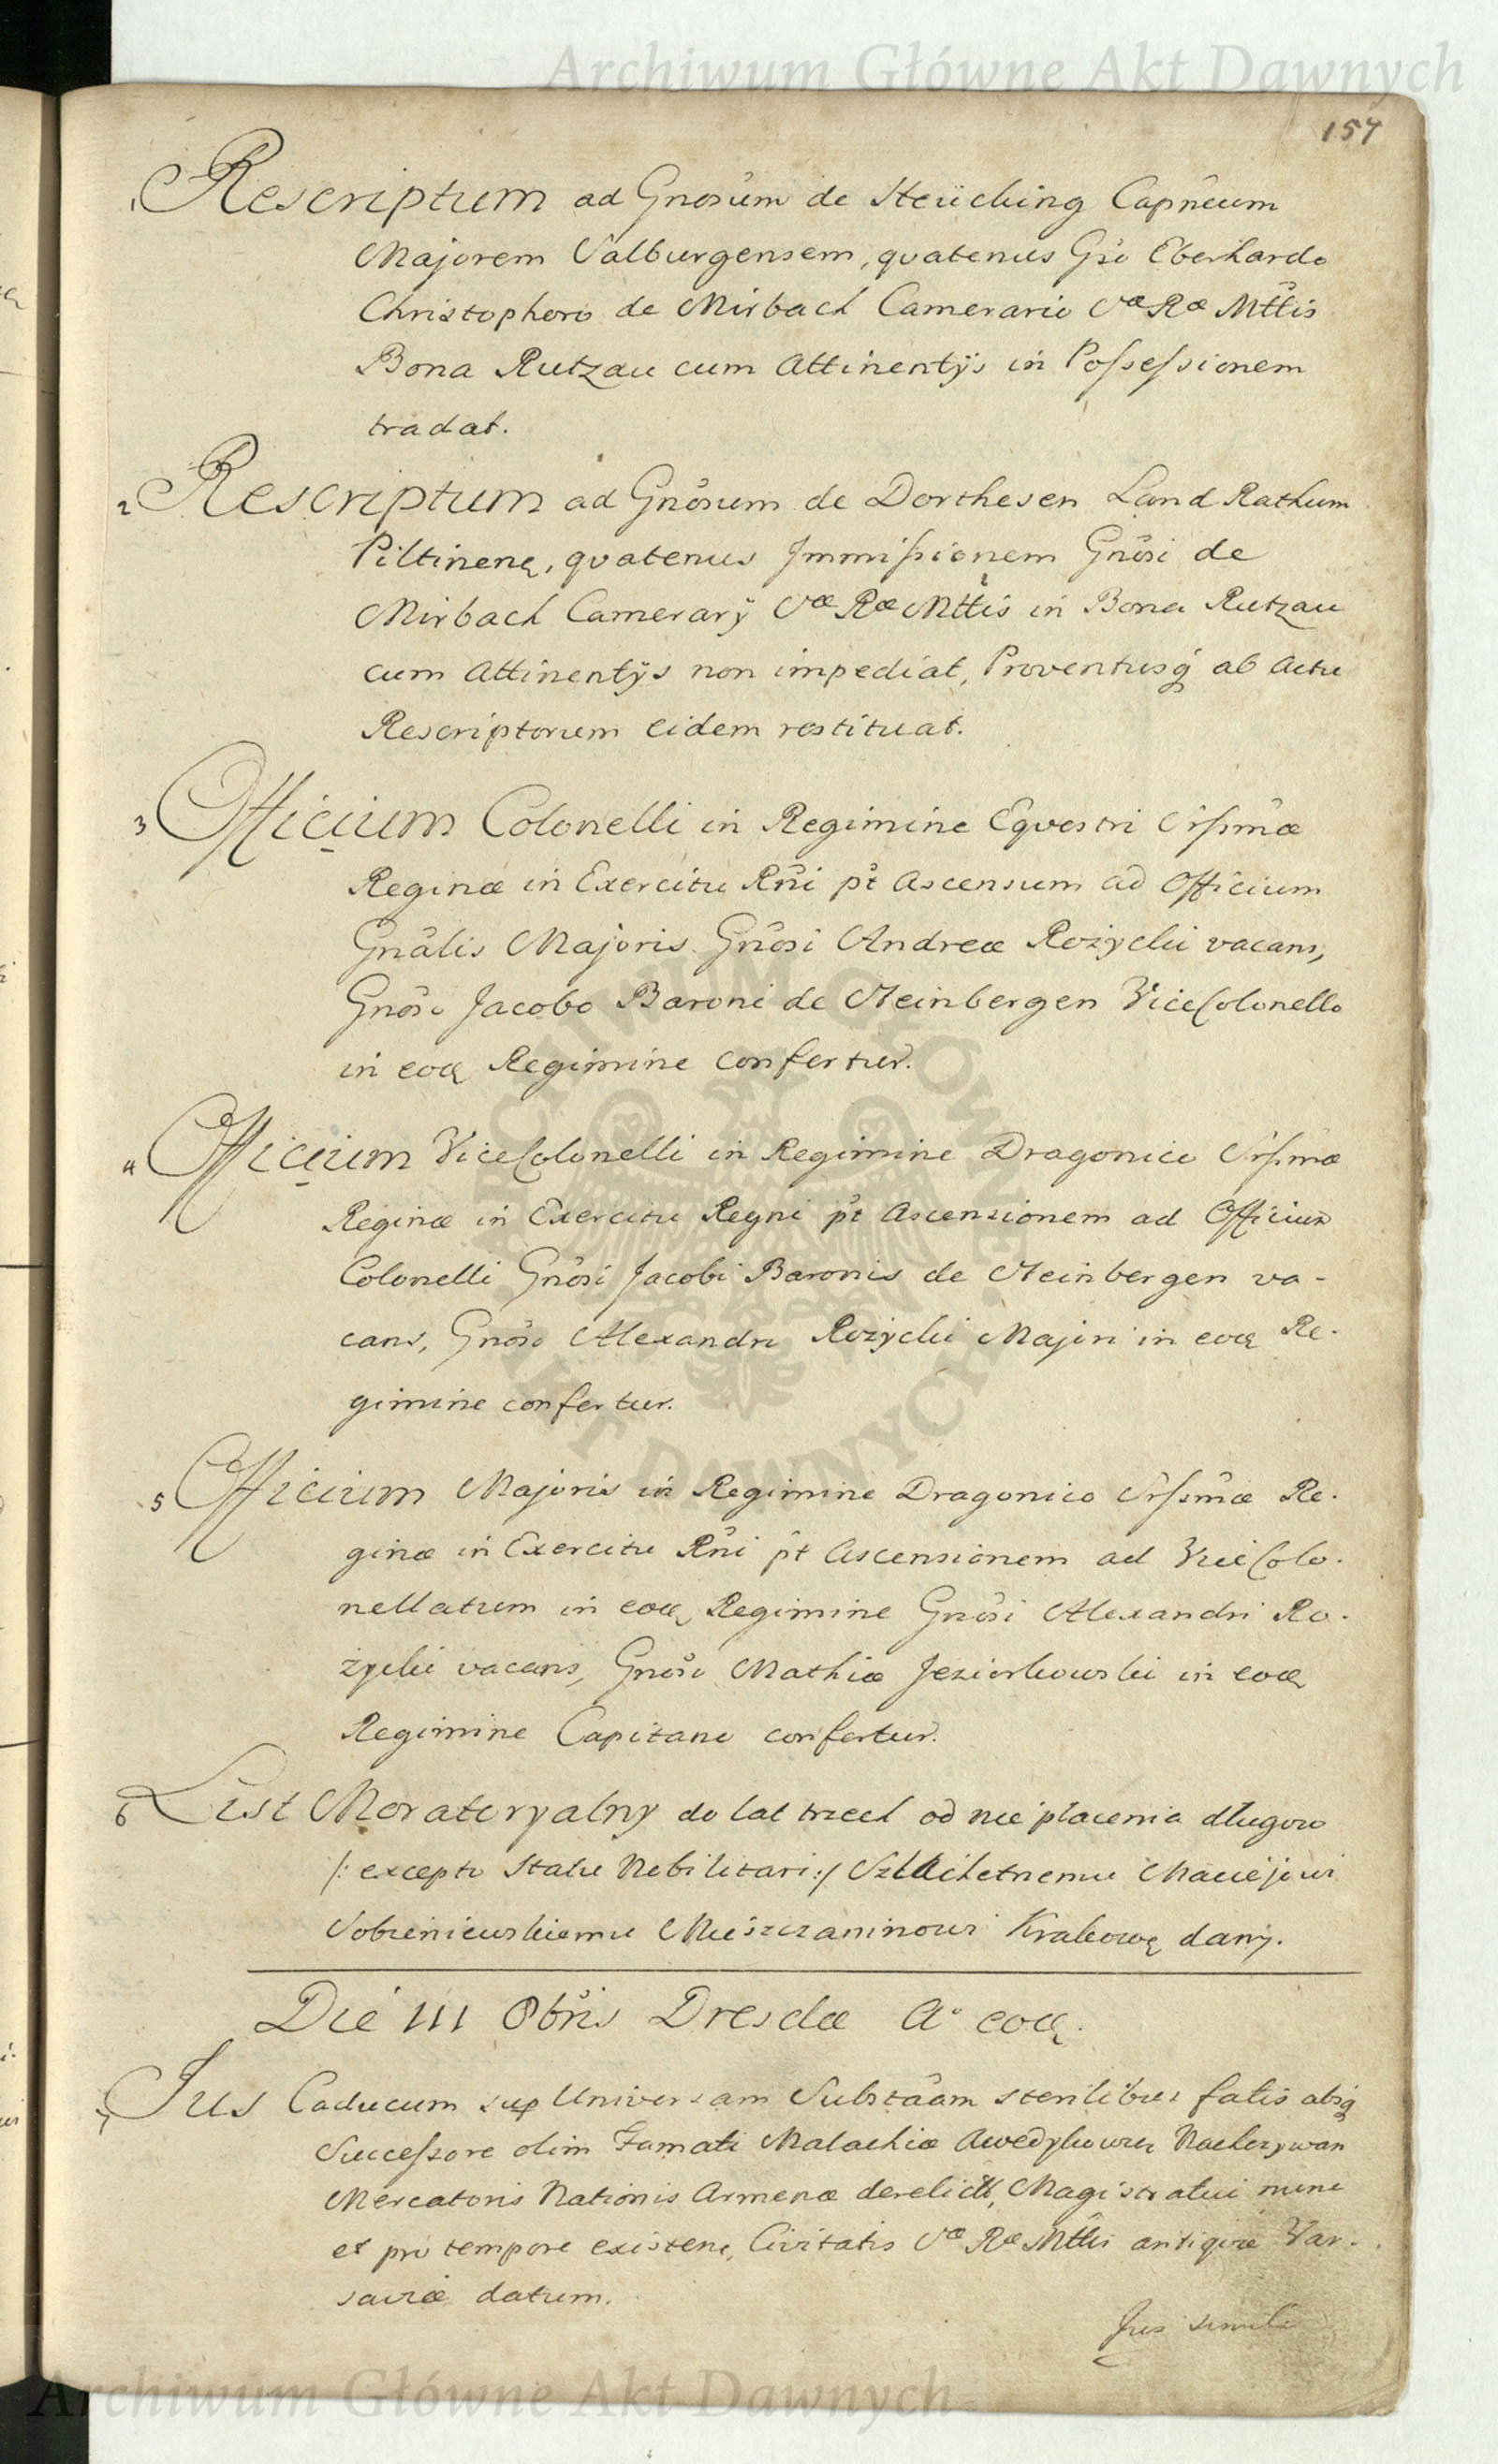 Archiwum Główne Akt Dawnych
157
1 Rescriptum ad Gnosum de Steüching Capneum
Majorem Valburgensem, quatenus Gso Eberhardo
Christophoro de Mirbach Camerario Sæ Ræ Mttis
Bona Rutzau cum Attinentÿs in Possessionem
tradat.
2 Rescriptum ad Gnosum de Dorthesen Land Rathum
Piltinenę, quatenus Immissionem Gnosi de
Mirbach Camerarÿ Sæ Ræ Mttis in Bona Rutzau
cum Attinentÿs non impediat, Proventusq ab Actu
Rescriptorum eidem restituat.
3 Officium Colonelli in Regimine Equestri Srssmæ
Reginæ in Exercitu Rni pt Ascensum ad Officium
Gnalis Majoris Gnosi Andreæ Rożycki vacans,
Gnoso Jacobo Baroni de Steinbergen ViceColonello
in eoą Regimine confertur.
4 Officium ViceColonelli in Regimine Dragonico Srssmæ
Reginæ in Exercitu Regni pt Ascensionem ad Officium
Colonelli Gnosi Jacobi Baronis de Steinbergen va-
cans, Gnoso Alexandro Rożycki Majori in eoą Re-
gimine confertur.
5 Officium Majoris in Regimine Dragonico Srssmæ Re-
ginæ in Exercitu Rni pt Ascensionem ad ViceColo-
nellatum in eoą Regimine Gnosi Alexandri Ro-
życki vacans, Gnoso Mathiæ Jeziorkowski in eoą
Regimine Capitano confertur.
6 List Moratoryalny do lat trzech od nie płacenia długow
/: excepto Statu Nobilitari :/ Szlachetnemu Maciejowi
Sobienieuskiemu Mieszczaninowi Krakowę dany.
Die III 8bris Dresdæ A° eoą.
1 Jus Caducum sup Universam Substaam sterilibus fatis absq
Successore olim Famati Malachiæ Nacherywan
Mercatoris Nationis Armenæ derelict, Magistratui nunc
et pro tempore existen, Civitatis Sæ Ræ Mttis antiquæ Var-
saviæ datum.
Jus simile
Archiwum Główne Akt Dawnych